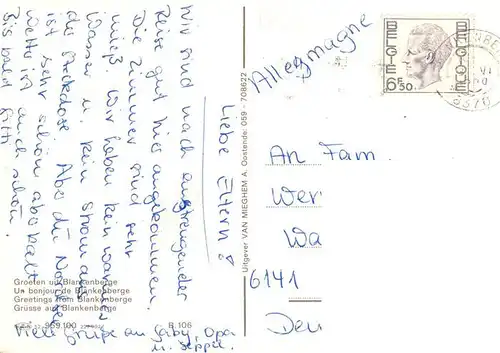 Liebe Eltern!
Wir sind nach anstrengender
Reise gut hier angekommen.
Die Zimmer sind sehr
mieß. Wir haben kein warmes
Wasser u. kein Strom aus
der Steckdose. Aber die Nordsee
ist sehr schön aber kalt
Wetter ist auch schön.
Bis bald
Viele Grüße an Gaby, Opa
u. Seppel.
Groeten uit Blankenberge
Un bonjour de Blankenberge
Greetings from Blankenberge
Grüsse aus Blankenberge
959.100
B. 106
Uitgever VAN MIEGHEM A. Oostende: 059 - 708622
Allemagne
BELGIE
BELGIQUE
6F50
8370
An Fam.
Wer
Wa
6141